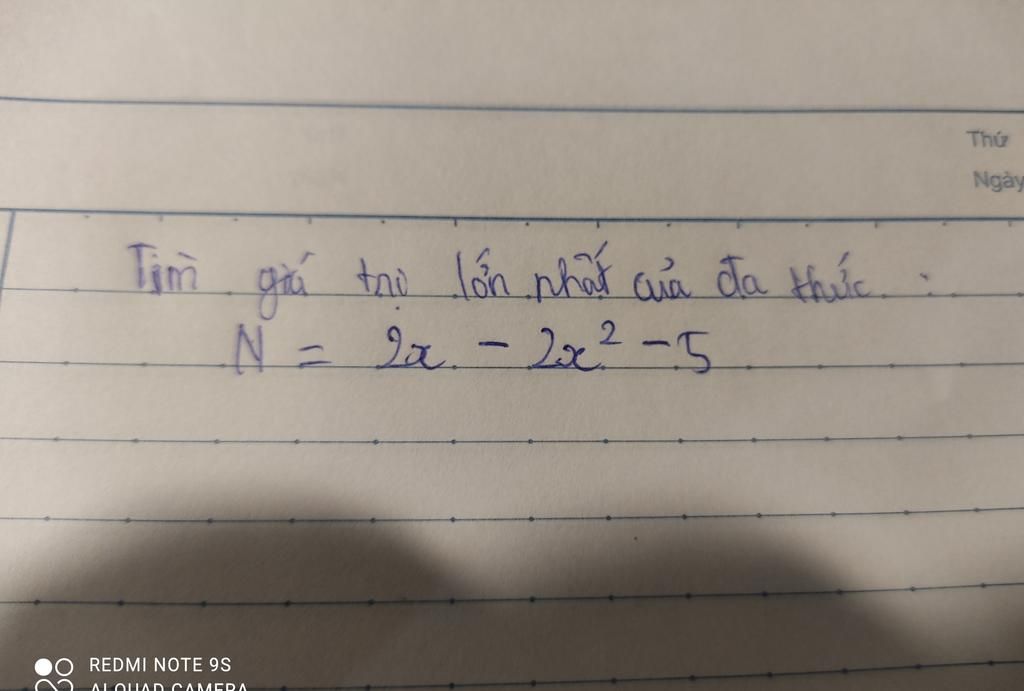 Thứ
Ngày
Tìm giá trị lớn nhất của đa thức :
N = 2x - 2x² - 5
REDMI NOTE 9S
AI QUAD CAMERA